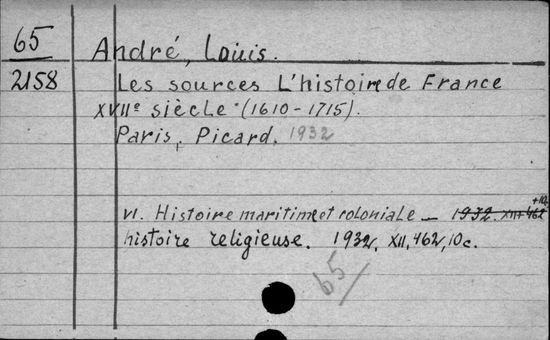 65 André, Louis.
2158 Les sources L'histoire de France
XVIIe siècle (1610-1715).
Paris, Picard. 1932
VI. Histoire maritime et coloniale — 1932. XII+462
histoire religieuse. 1932, XII, 462, 10c.
65